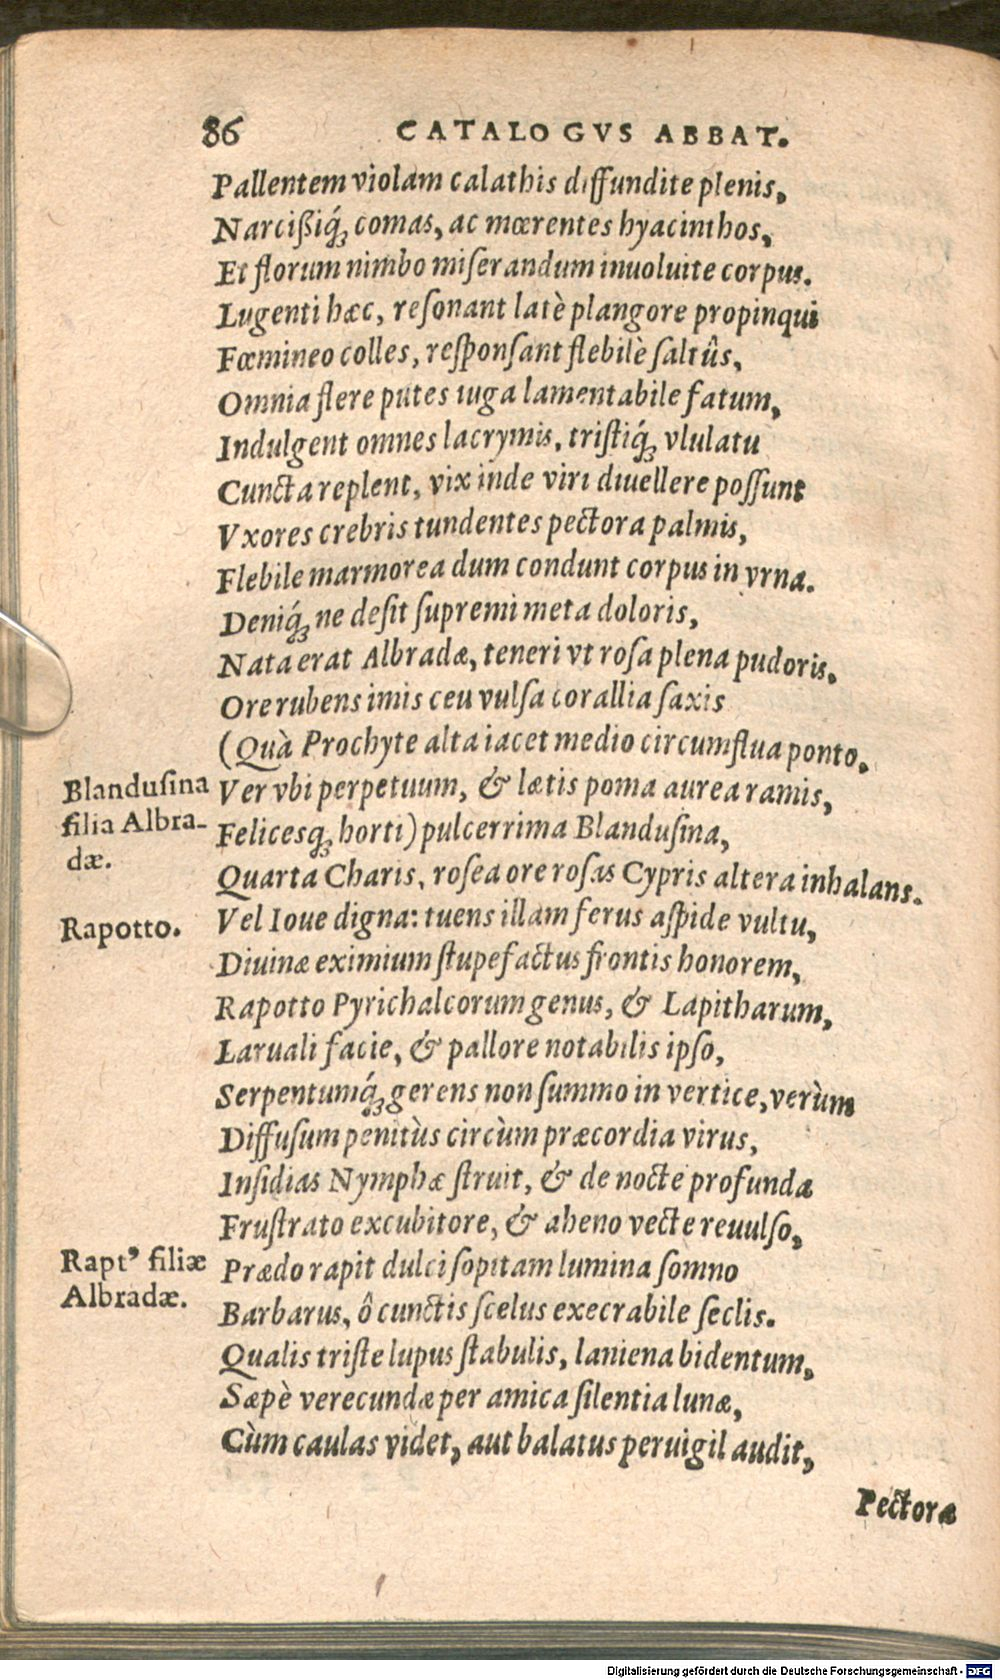 86 CATALOGVS ABBAT.
Pallentem violam calathis diffundite plenis,
Narcißiq́; comas, ac mœrentes hyacinthos,
Et florum nimbo miserandum inuoluite corpus.
Lugenti hæc, resonant latè plangore propinqui
Fœmineo colles, responsant flebilè saltûs,
Omnia flere putes iuga lamentabile fatum,
Indulgent omnes lacrymis, tristiq́; vlulatu
Cuncta replent, vix inde viri diuellere possunt
Vxores crebris tundentes pectora palmis,
Flebile marmorea dum condunt corpus in vrna.
Deniq́; ne desit supremi meta doloris,
Nata erat Albradæ, teneri vt rosa plena pudoris.
Ore rubens imis ceu vulsa corallia saxis
(Quà Prochyte alta iacet medio circumflua ponto.
Blandusina
filia Albra-
dæ.
Ver vbi perpetuum, & lætis poma aurea ramis,
Felicesq; horti) pulcerrima Blandusina,
Quarta Charis, rosea ore rosas Cypris altera inhalans.
Rapotto.
Vel Ioue digna: tuens illam ferus aspide vultu,
Diuinæ eximium stupefactus frontis honorem,
Rapotto Pyrichalcorum genus, & Lapitharum,
Laruali facie, & pallore notabilis ipso,
Serpentumq́; gerens non summo in vertice, verùm
Diffusum penitùs circùm præcordia virus,
Insidias Nymphæ struit, & de nocte profunda
Frustrato excubitore, & aheno vecte reuulso,
Rapt⁹ filiæ
Albradæ.
Prædo rapit dulci sopitam lumina somno
Barbarus, ô cunctis scelus execrabile seclis.
Qualis triste lupus stabulis, laniena bidentum,
Sæpè verecundæ per amica silentia lunæ,
Cùm caulas videt, aut balatus peruigil audit,
Pectora
Digitalisierung gefördert durch die Deutsche Forschungsgemeinschaft - DFG